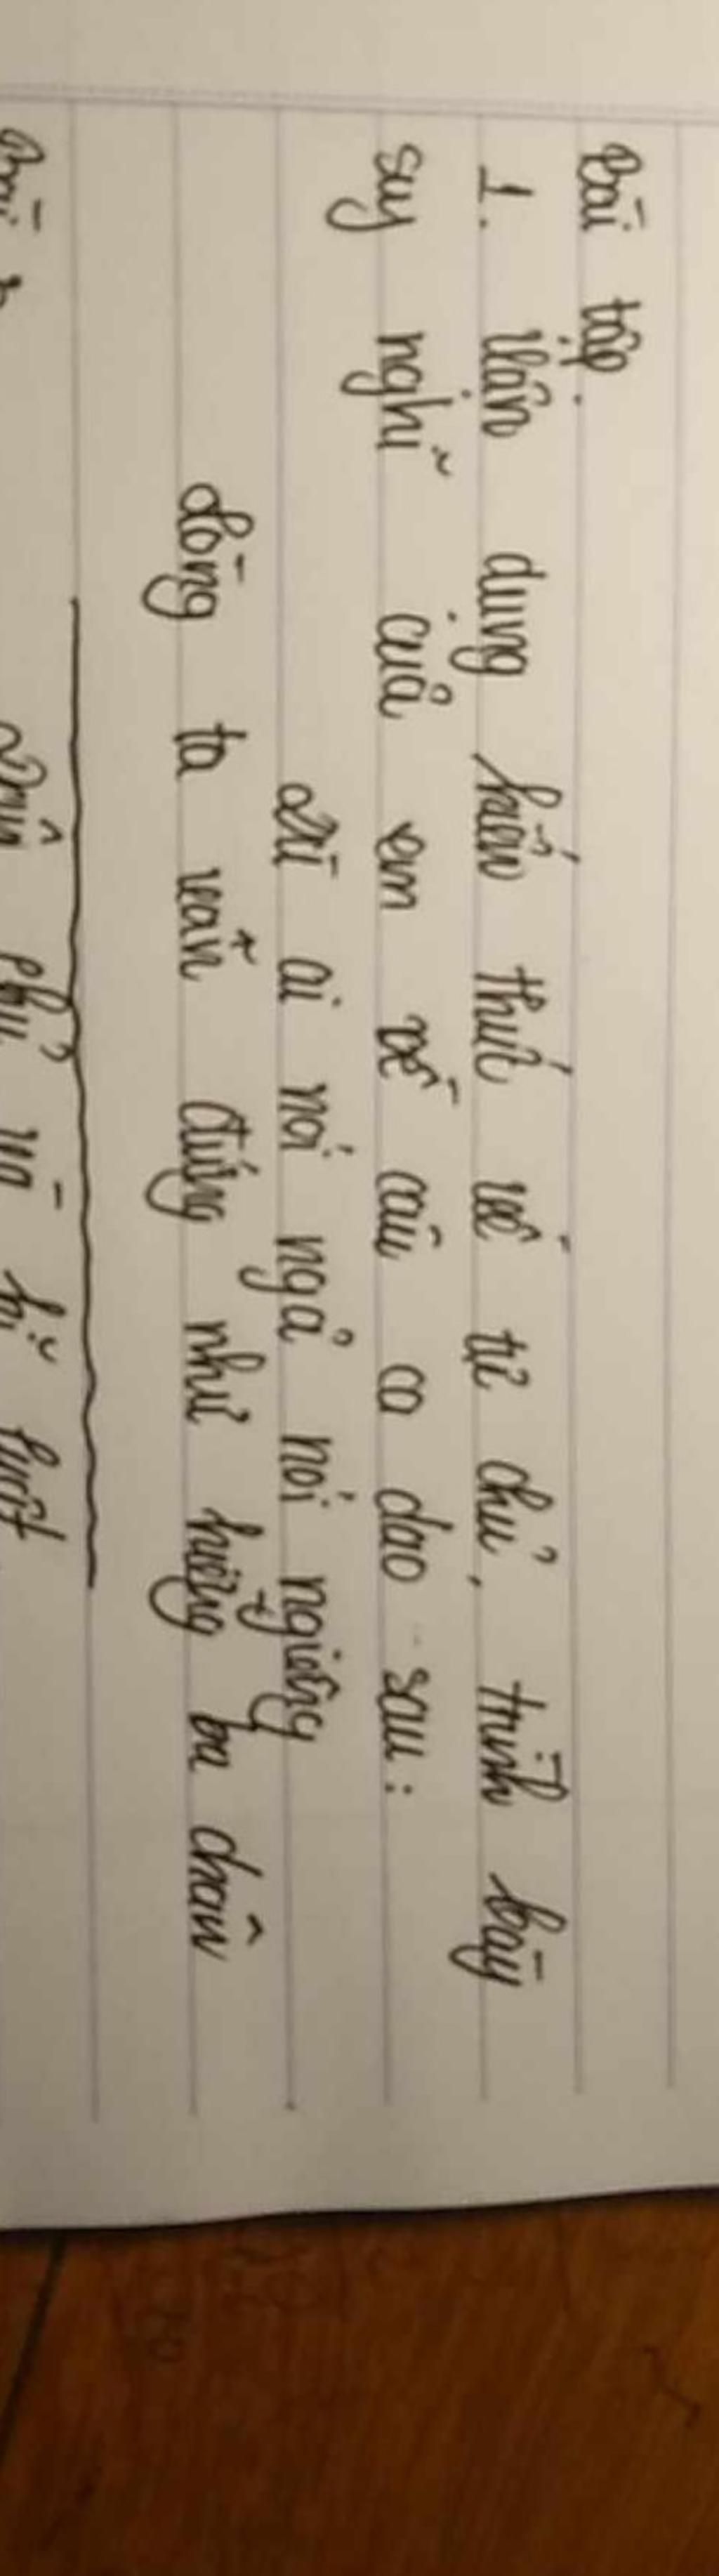 Bài tập.
1. Vận dụng kiến thức về tự chủ, trình bày
suy nghĩ của em về câu ca dao sau:
Dù ai nói ngả nói nghiêng
Lòng ta vẫn vững như kiềng ba chân
Bài
Dân chủ và kỉ luật